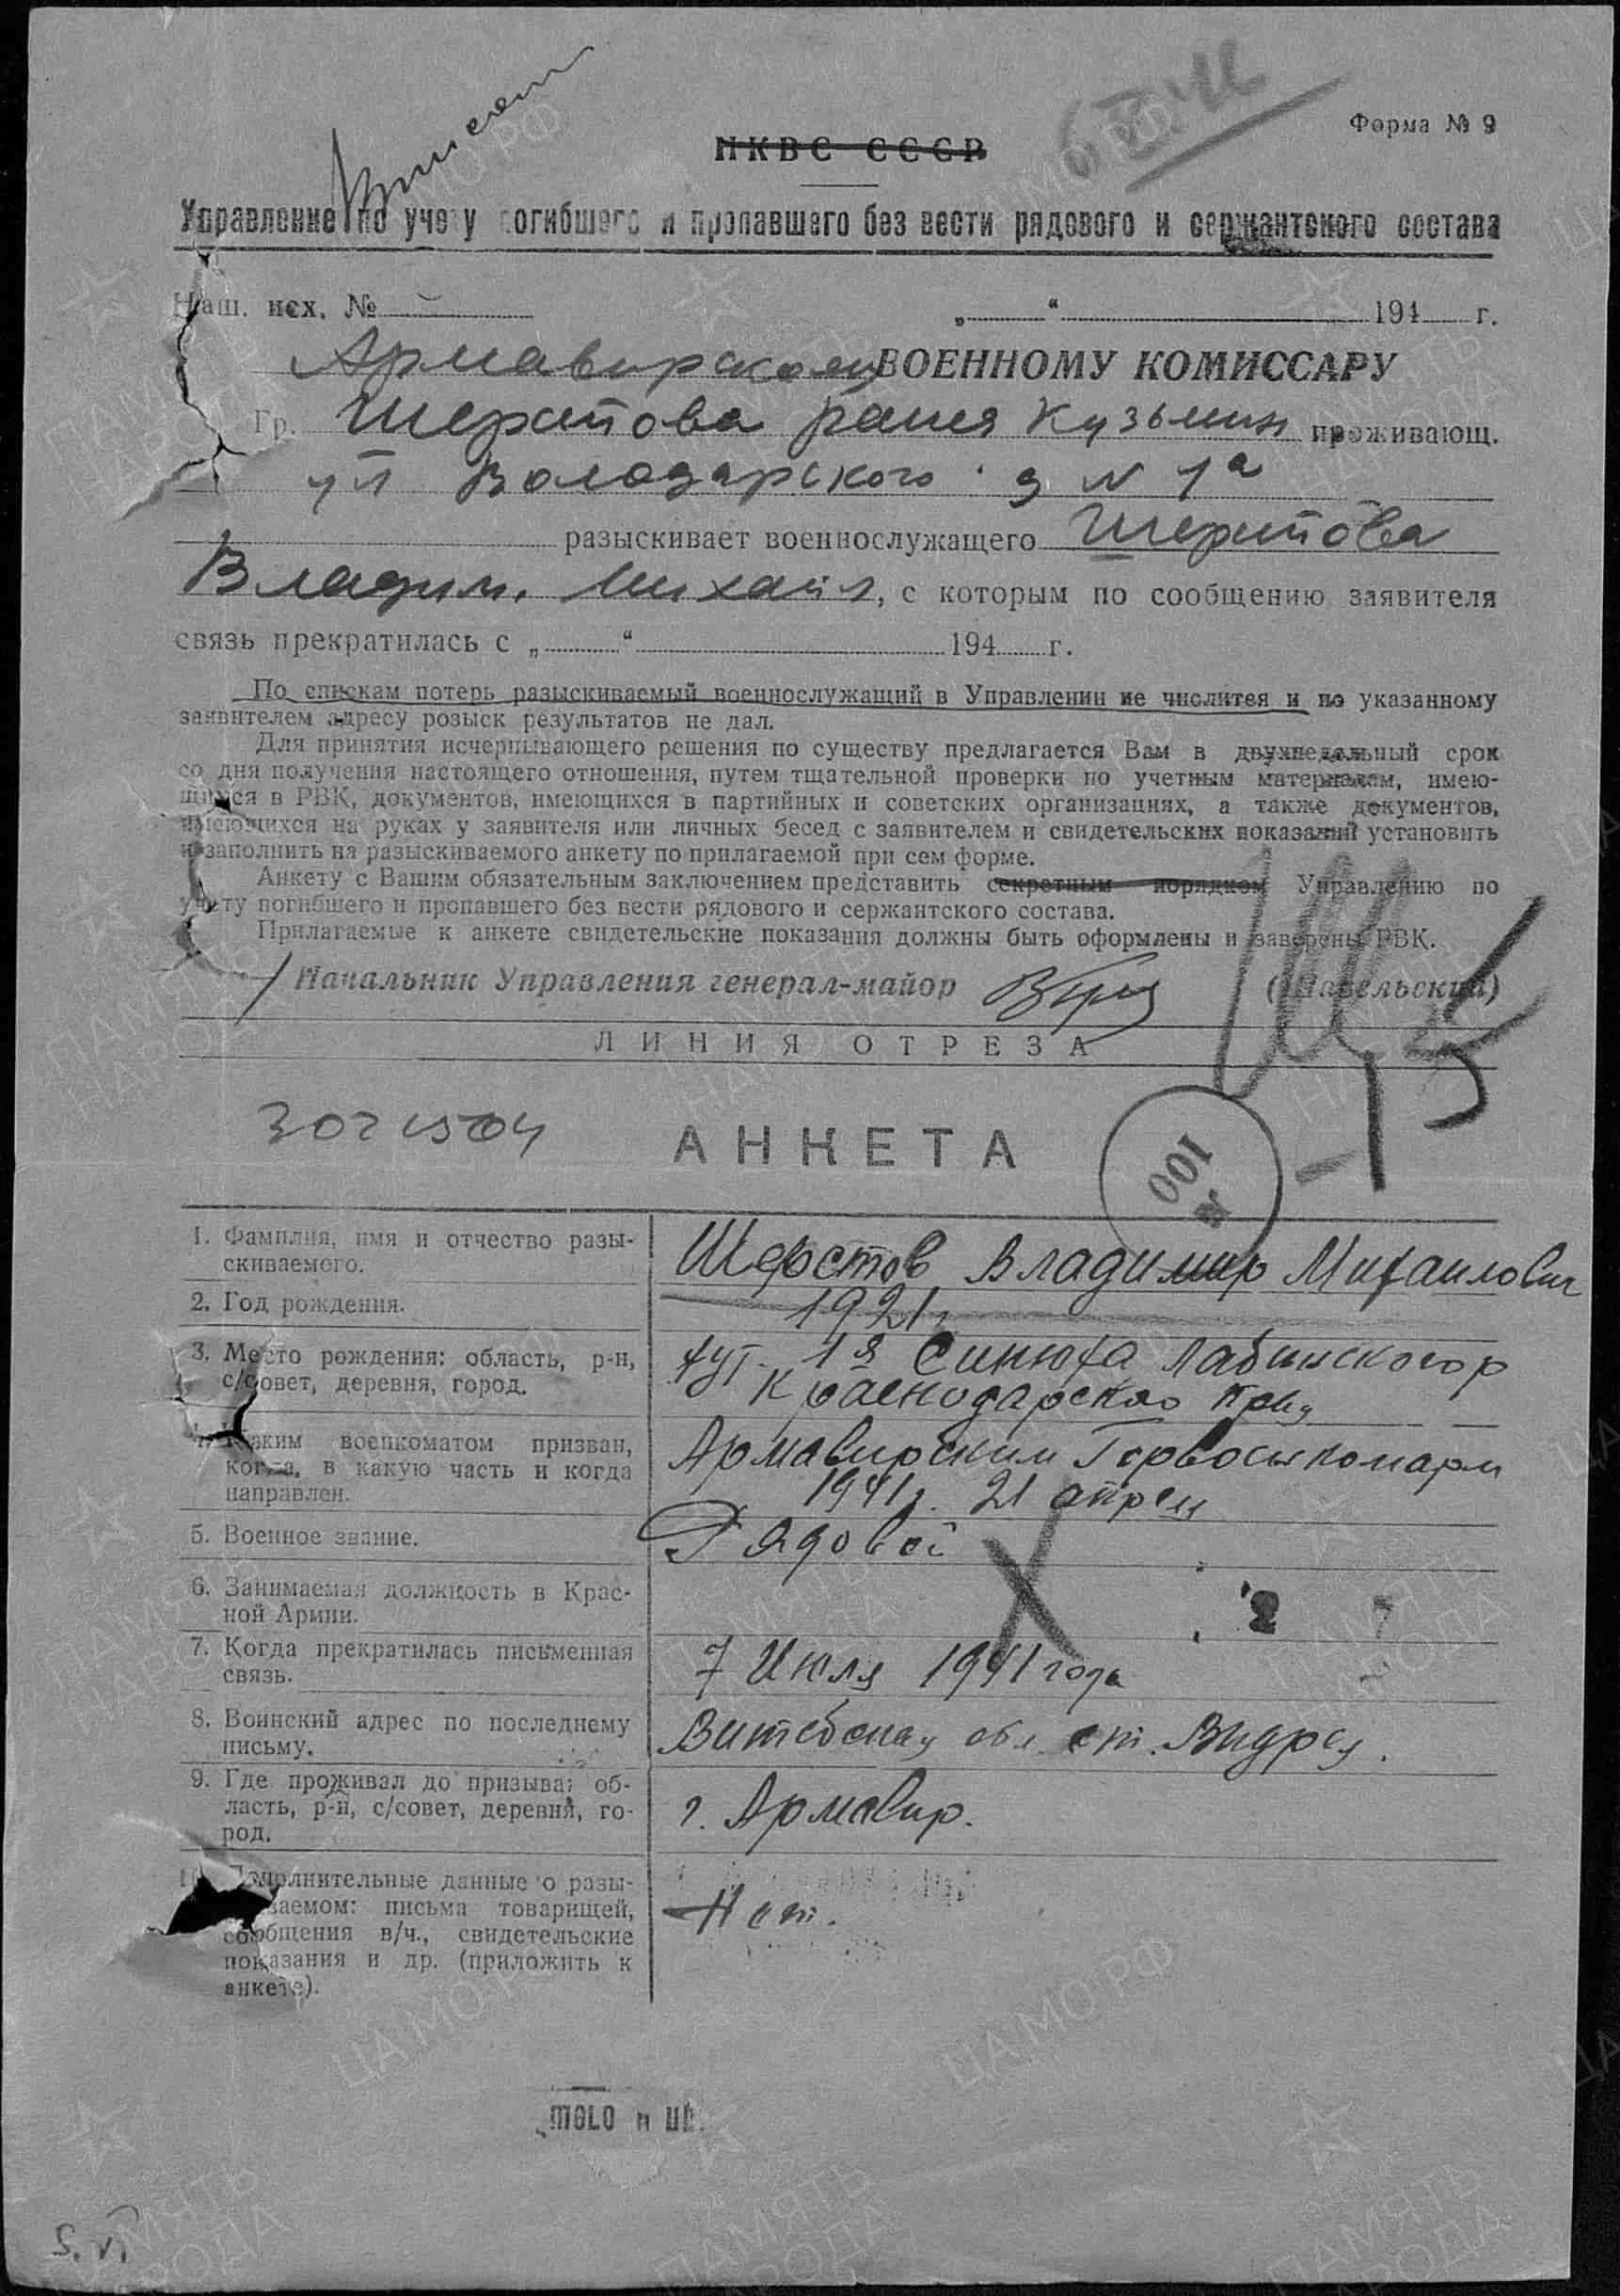 Форма № 9
НКВС СССР
Управление по учету погибшего и пропавшего без вести рядового и сержантского состава
Наш. исх. №
„ “ 194 г.
Армавирскому ВОЕННОМУ КОМИССАРУ
Гр. Шерстова Раиса Кузьмин проживающ.
ул Володарского д N 1а
разыскивает военнослужащего Шерстова
Владим. Михайл, с которым по сообщению заявителя
связь прекратилась с „ “ 194 г.
По спискам потерь разыскиваемый военнослужащий в Управлении не числится и по указанному
заявителем адресу розыск результатов не дал.
Для принятия исчерпывающего решения по существу предлагается Вам в двухнедельный срок
со дня получения настоящего отношения, путем тщательной проверки по учетным материалам, имею-
щимся в РВК, документов, имеющихся в партийных и советских организациях, а также документов,
имеющихся на руках у заявителя или личных бесед с заявителем и свидетельских показаний установить
и заполнить на разыскиваемого анкету по прилагаемой при сем форме.
Анкету с Вашим обязательным заключением представить секретным порядком Управлению по
учету погибшего и пропавшего без вести рядового и сержантского состава.
Прилагаемые к анкете свидетельские показания должны быть оформлены и заверены РВК.
Начальник Управления генерал-майор (Шавельский)
ЛИНИЯ ОТРЕЗА
АНКЕТА
100
1. Фамилия, имя и отчество разы-
скиваемого.
Шерстов Владимир Михаилович
2. Год рождения.
1921г
3. Место рождения: область, р-н,
с/совет, деревня, город.
хут. 1я Синюха Лабинского р
Краснодарского края
4. Каким военкоматом призван,
когда, в какую часть и когда
направлен.
Армавирским Горвоенкоматом
1941г. 21 апреля
5. Военное звание.
Рядовой
6. Занимаемая должность в Крас-
ной Армии.
7. Когда прекратилась письменная
связь.
7 Июля 1941 года
8. Воинский адрес по последнему
письму.
Витебская обл. ст. Выдрея.
9. Где проживал до призыва: об-
ласть, р-н, с/совет, деревня, го-
род.
г. Армавир.
10. Дополнительные данные о разы-
скиваемом: письма товарищей,
сообщения в/ч., свидетельские
показания и др. (приложить к
анкете).
Нет.